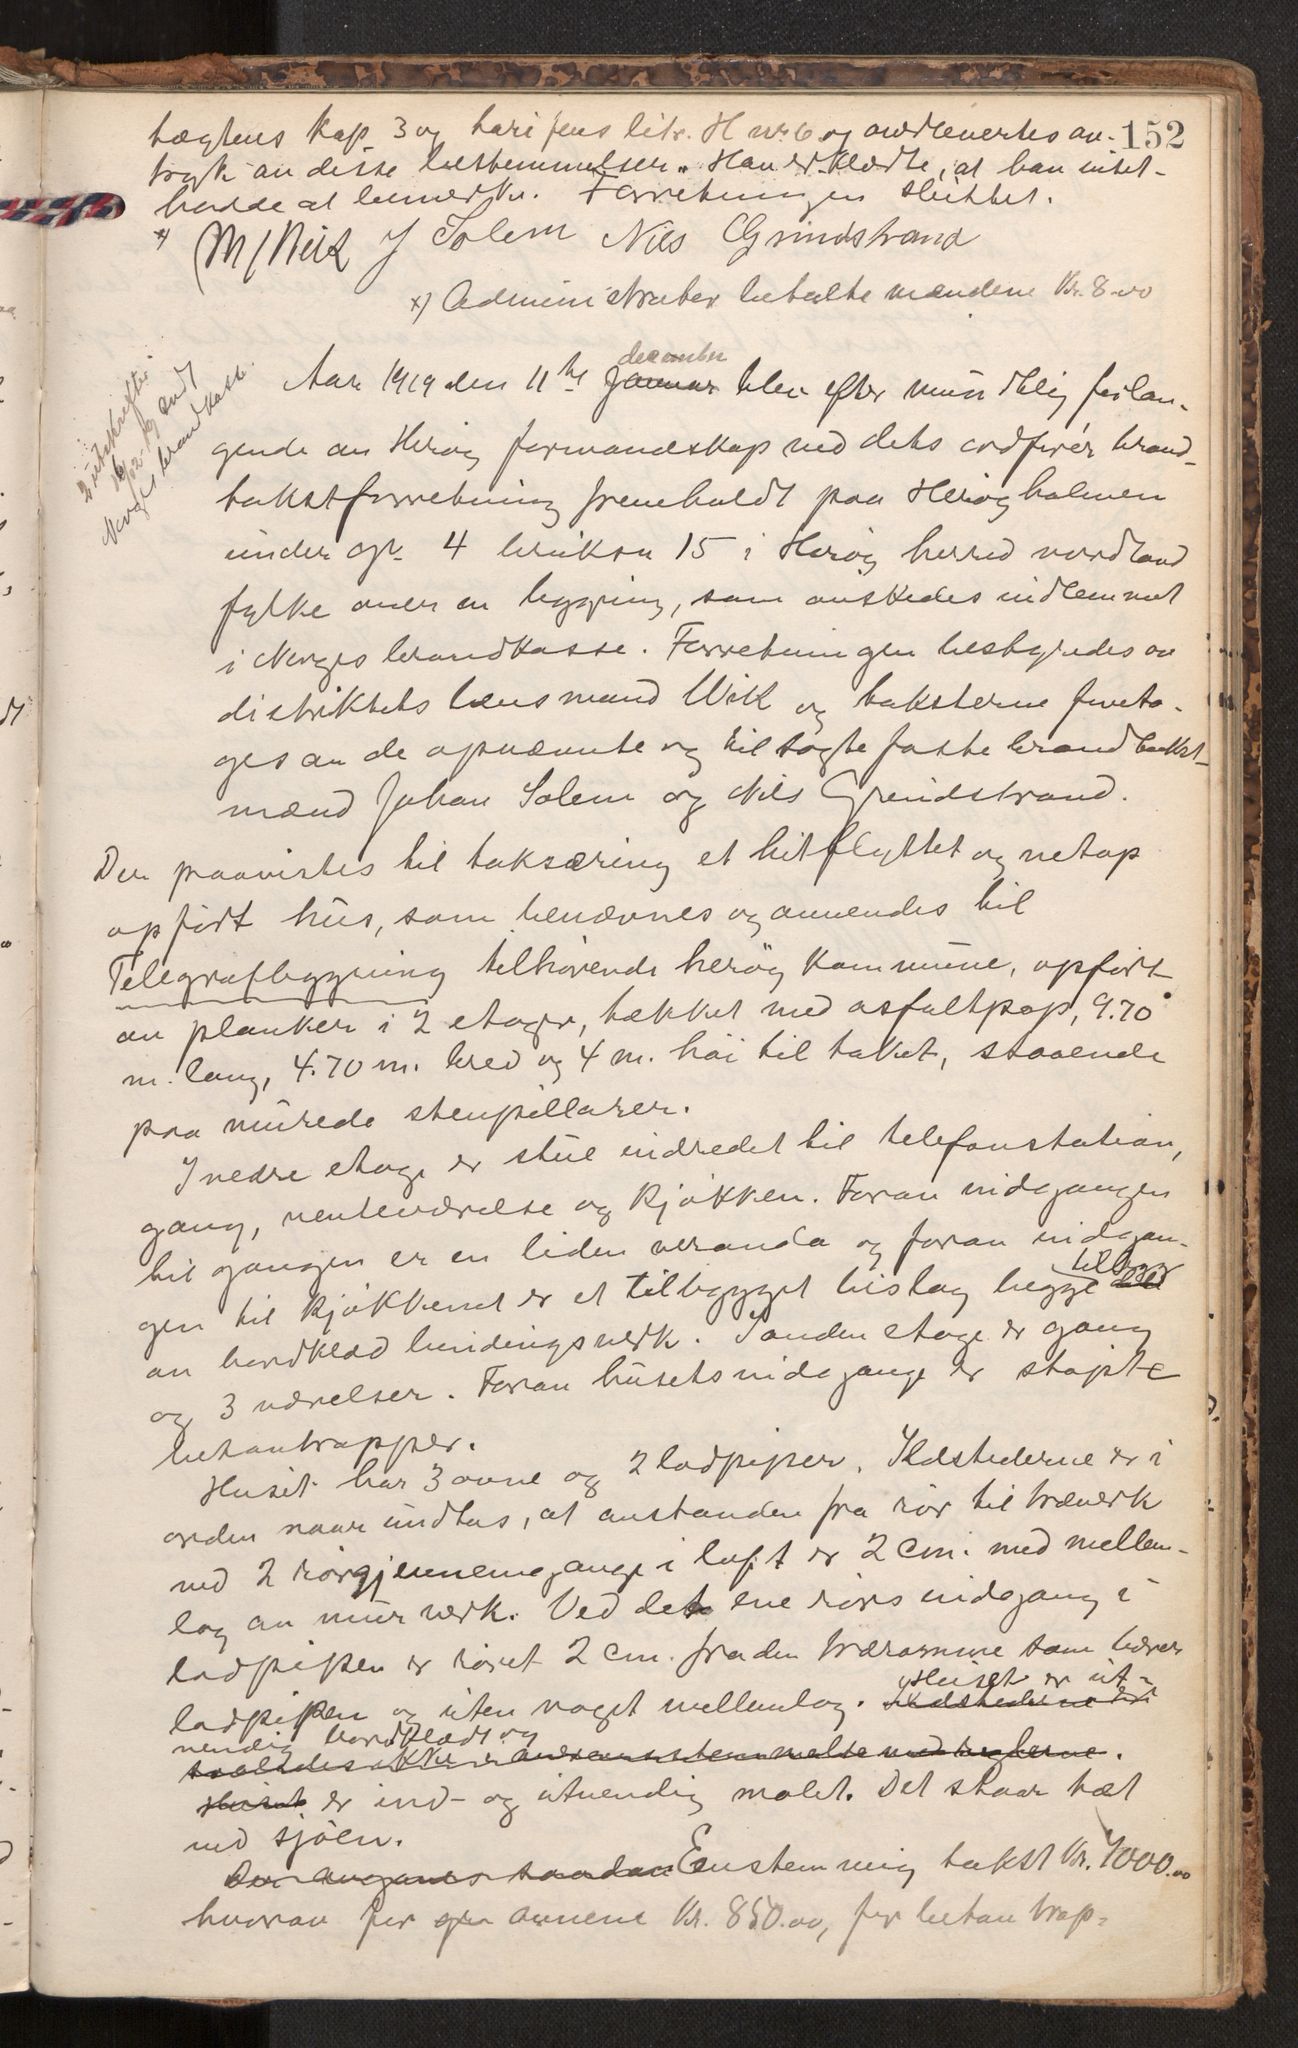 152
tægtens kap 3 og tarifens litr. H nr. 6 og avdlevertes av-
tryk av disse bestemmelser. Han erklærte, at han intet
hadde at bemerke. Forretningen sluttet.
x) M/Wik J Solem Nils Grindstrand
x) Administrator betalte mændene kr. 8.00
2 utskrifter
16/12-19 sendt
Norges brandkasse.
Aar 1919 den 11te januar december blev efter mundtlig forlan-
gende av Herøy formandskap ved dets ordfører brand-
takstforretning fremholdt paa Herøyholmen
under gr. 4 bruksn 15 i Herøy herred nordland
fylke over en bygning, som ønskedes indlemmet
i Norges brandkasse. Forretningen bestyredes av
distriktets lensmand Wik og taksterne foreto-
ges av de opnævnte og tilsagte faste brandtakst-
mænd Johan Solem og Nils Grindstrand.
Der paavistes til taksering et hitflyttet og netop
opført hus, som benævnes og anvendes til
Telegrafbygning tilhørende herøy kommune, opført
av planker i 2 etager, tækket med asfaltpap, 9.70
m. lang, 4.70 m. bred og 4 m. høi til taket, staaende
paa murede stenpillarer.
I nedre etage er stue indredet til telefonstation,
gang, venteværelse og kjøkken. Foran indgangen
til gangen er en liden veranda og foran indgan-
gen til kjøkkenet er et tilbygget bislag begge tilbygg
av bordklæd bindingsverk. I anden etage er gang
og 3 værelser. Foran husets indgange er støpte
betontrapper.
Huset har 3 ovne og 2 lodpiper. Ildstederne er i
orden naar undtas, at avstanden fra rør til træverk
ved 2 rørgjennemgange i loft er 2 cm. med mellem-
lag av murverk. Ved det ene rørs indgang i
lodpipen er røret 2 cm. fra den træramme som bærer
lodpipen og uten noget mellemlag. Huset er ut-
Ildstederne er
vendig bordklædt og
saaledes ikke i overensstemmelse med reglerne.
Huset er ind- og utvendig malet. Det staar tæt
ved sjøen.
Der avgaves saadan Enstemmig takst kr. 7000.00
hvorav for ovnene kr. 850.00, for beton trap-